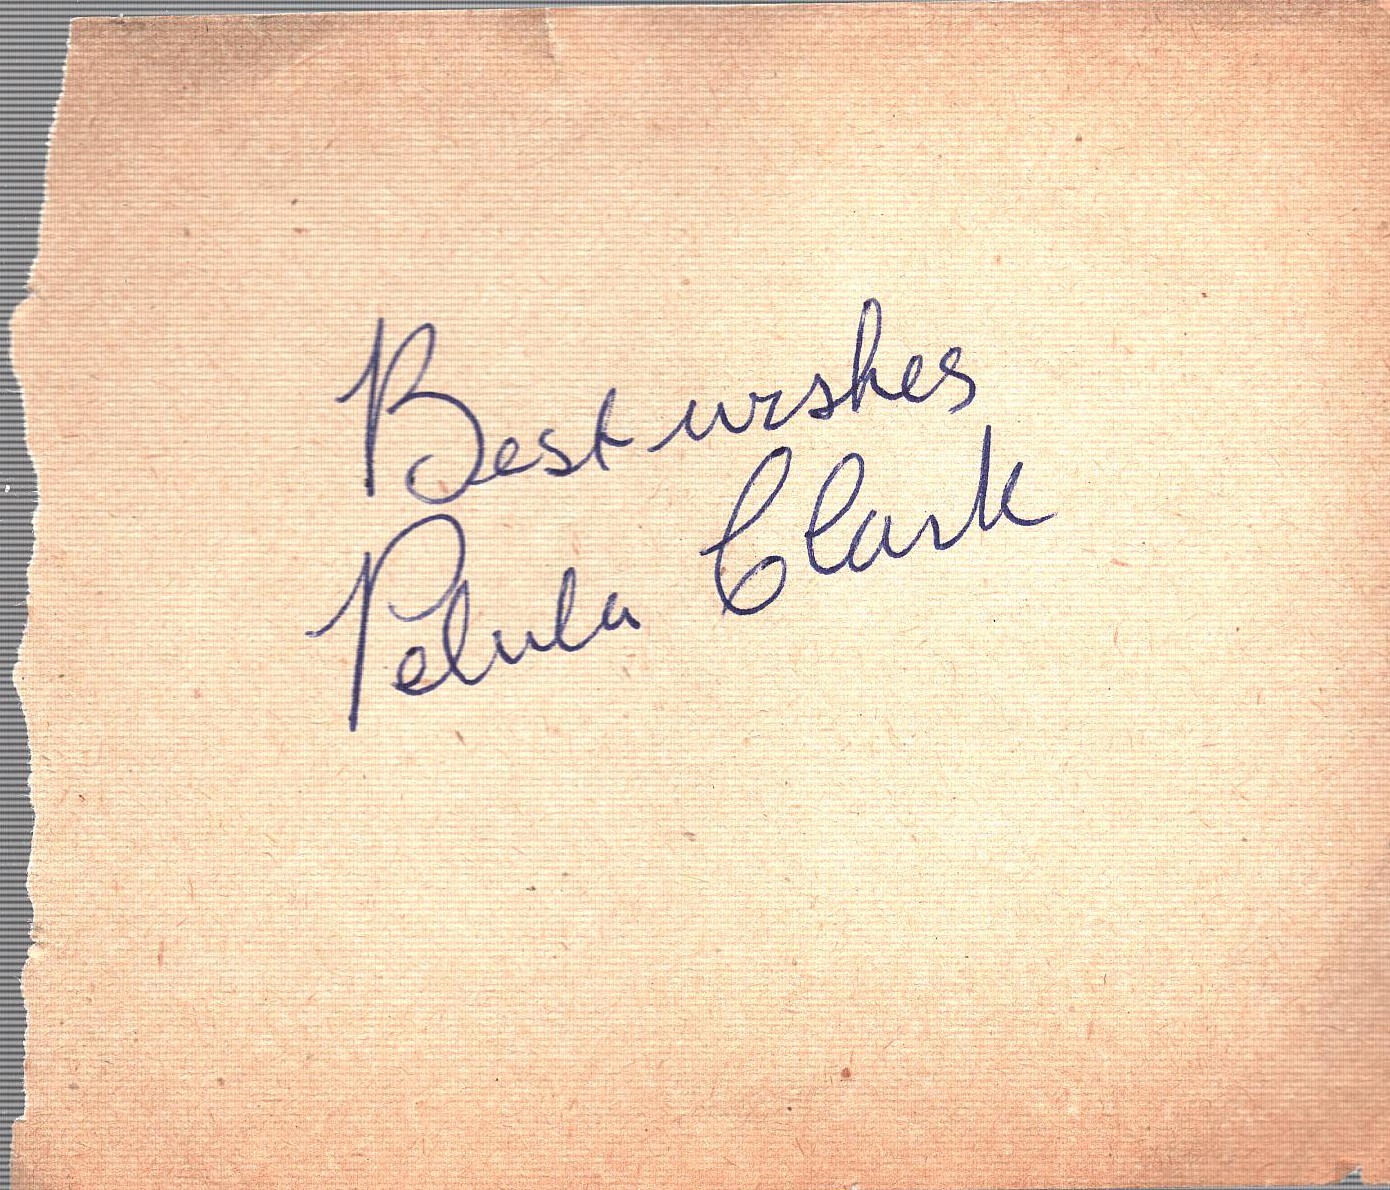 Best wishes
Petula Clark